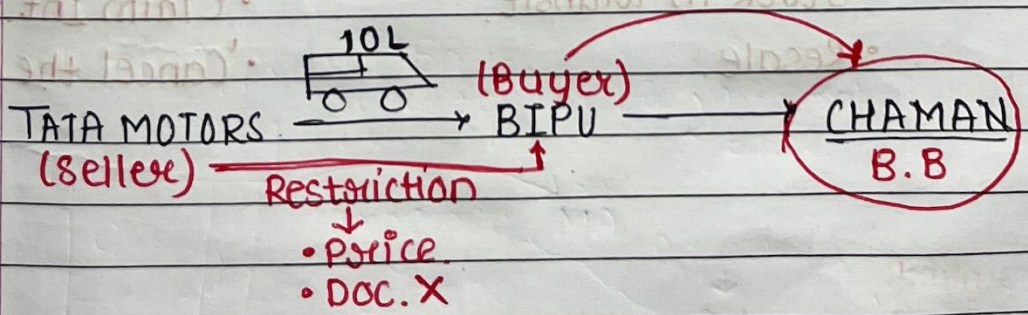 10L
(Buyer)
TATA MOTORS BIPU CHAMAN
(Seller) B.B
Restriction
• Price
• DOC. X